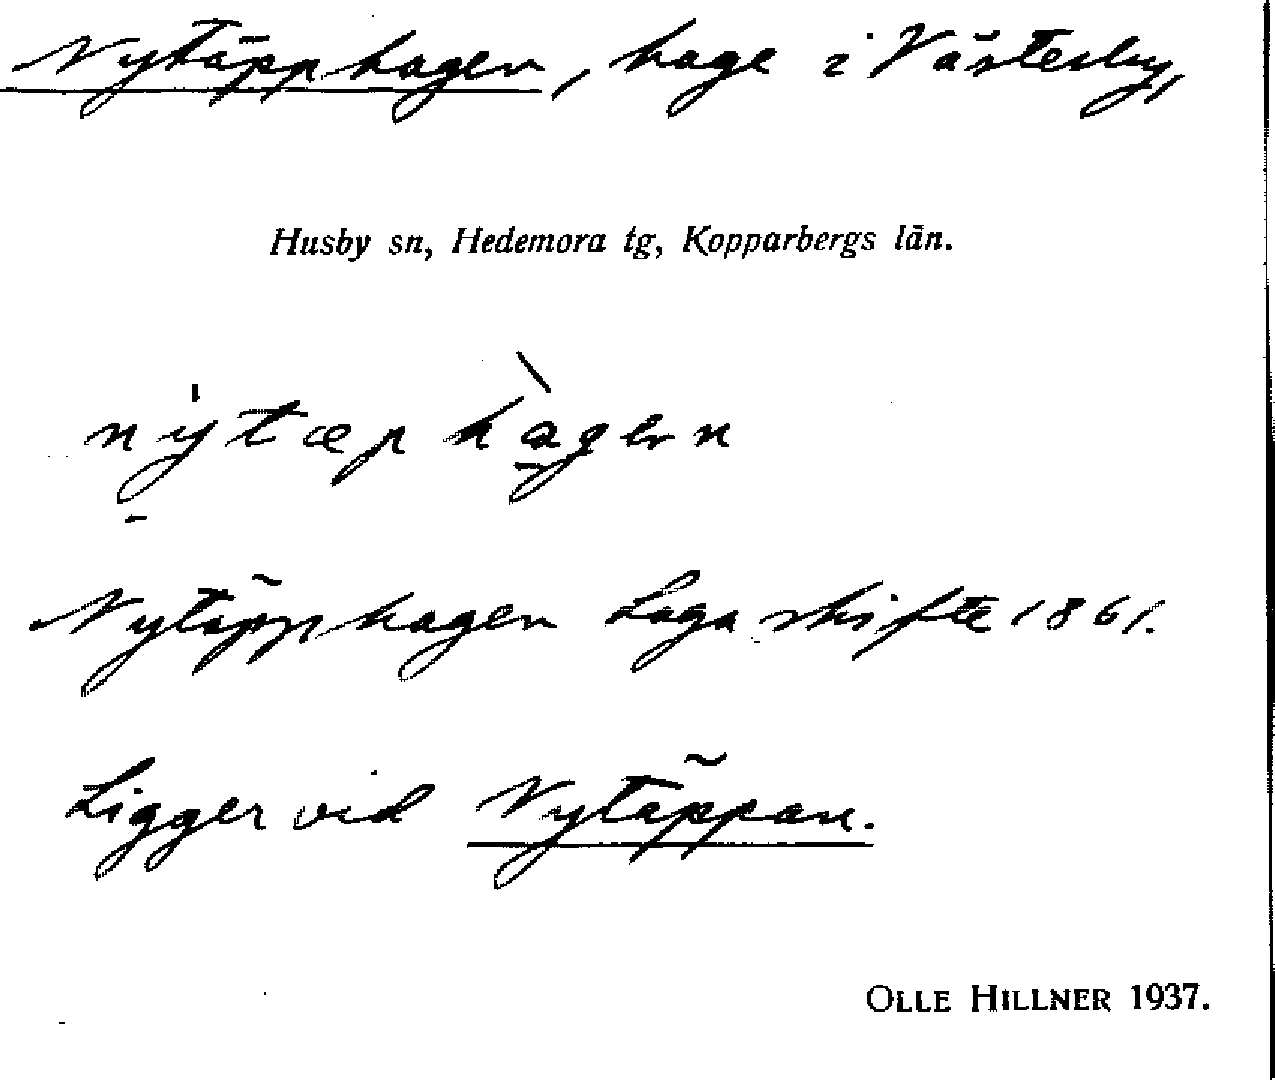 Nytäpphagen, hage i Västerby,
Husby sn, Hedemora tg, Kopparbergs län.
nytæphàgen
Nytäpphagen Laga skifte 1861.
Ligger vid Nytäppan.
OLLE HILLNER 1937.